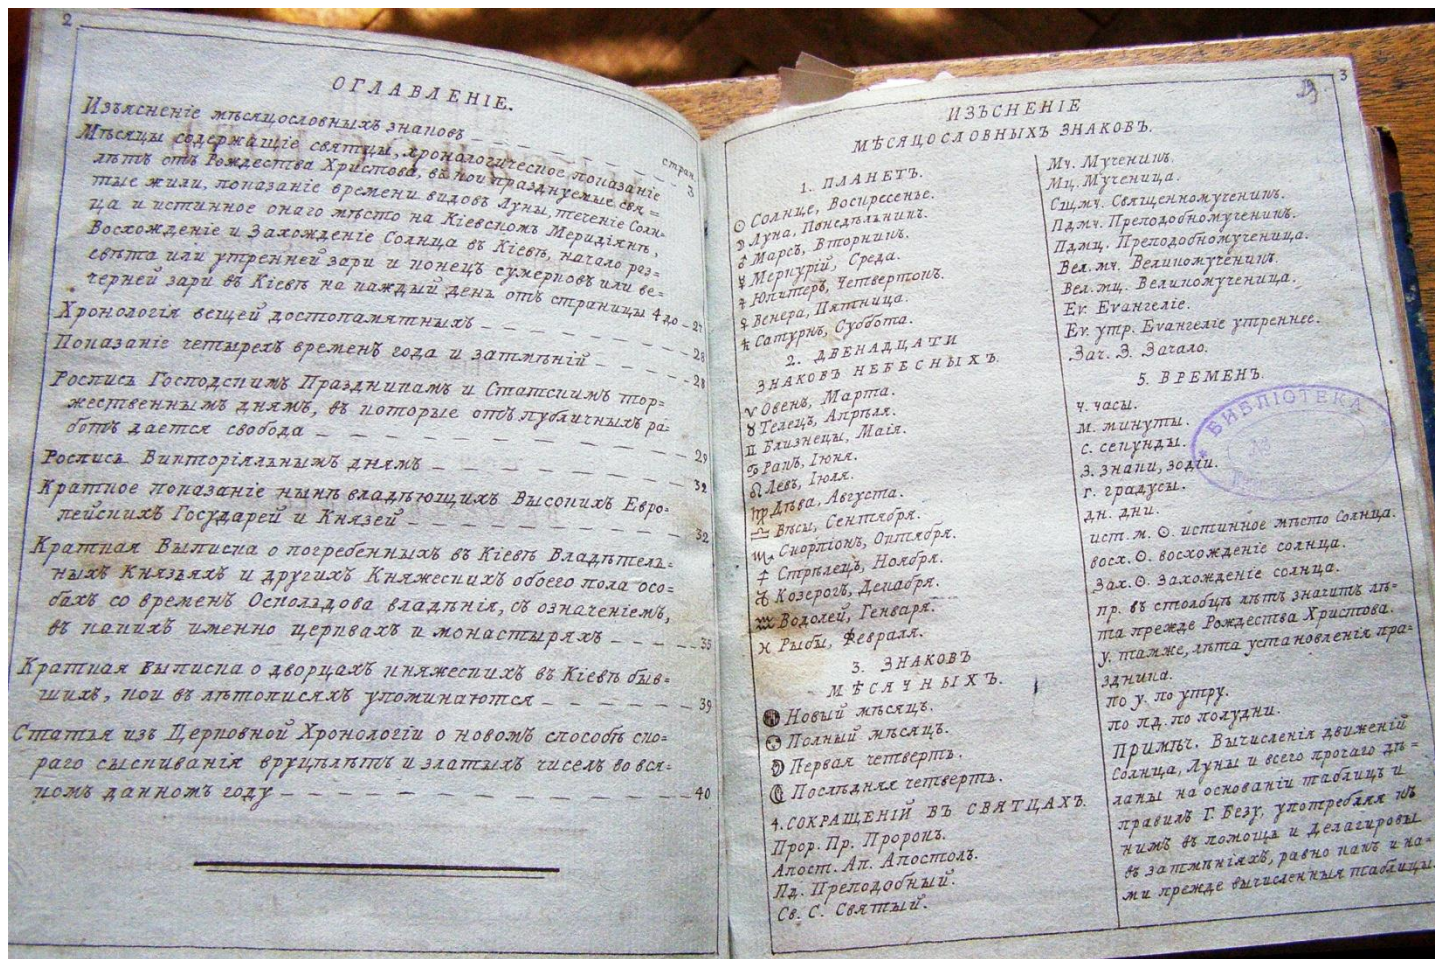 2
ОГЛАВЛЕНІЕ.
стран.
Изъясненіе мѣсяцословныхъ знаковъ — 3
Мѣсяцы содержащіе святцы, хронологическое показаніе
лѣтъ отъ Рождества Христова, въ кои празднуемые свя=
тые жили, показаніе времени видовъ Луны, теченіе Солн=
ца и истинное онаго мѣсто на Кіевскомъ Меридіянѣ,
Восхожденіе и Захожденіе Солнца въ Кіевѣ, начало раз=
свѣта или утренней зари и конецъ сумерковъ или ве=
черней зари въ Кіевѣ на каждый день отъ страницы 4 до — 27
Хронологія вещей достопамятныхъ — 28
Показаніе четырехъ временъ года и затмѣній — 28
Роспись Господскимъ Праздникамъ и Статскимъ тор=
жественнымъ днямъ, въ которые отъ публичныхъ ра=
ботъ дается свобода — 29
Роспись Викторіяльнымъ днямъ — 32
Краткое показаніе нынѣ владѣющихъ Высокихъ Евро=
пейскихъ Государей и Князей — 32
Краткая Выписка о погребенныхъ въ Кіевѣ Владѣтель=
ныхъ Князьяхъ и другихъ Княжескихъ обоего пола осо=
бахъ со временъ Оскольдова владѣнія, съ означеніемъ,
въ какихъ именно церквахъ и монастыряхъ — 35
Краткая выписка о дворцахъ княжескихъ въ Кіевѣ быв=
шихъ, кои въ лѣтописяхъ упоминаются — 39
Статья изъ Церковной Хронологіи о новомъ способѣ ско=
раго сыскиванія вруцѣлѣтъ и златыхъ чиселъ во вся=
комъ данномъ году — 40
3
ИЗЪСНЕНІЕ
МѢСЯЦОСЛОВНЫХЪ ЗНАКОВЪ.
1. ПЛАНЕТЪ.
☉ Солнце, Воскресенье.
☽ Луна, Понедѣльникъ.
♂ Марсъ, Вторникъ.
☿ Меркурій, Среда.
♃ Юпитеръ, Четвертокъ.
♀ Венера, Пятница.
♄ Сатурнъ, Суббота.
2. ДВЕНАДЦАТИ
ЗНАКОВЪ НЕБЕСНЫХЪ.
♈ Овенъ, Марта.
♉ Телецъ, Апрѣля.
♊ Близнецы, Маія.
♋ Ракъ, Іюня.
♌ Левъ, Іюля.
♍ Дѣва, Августа.
♎ Вѣсы, Сентября.
♏ Скорпіонъ, Октября.
♐ Стрѣлецъ, Ноября.
♑ Козерогъ, Декабря.
♒ Водолей, Генваря.
♓ Рыбы, Февраля.
3. ЗНАКОВЪ
МѢСЯЧНЫХЪ.
Новый мѣсяцъ.
Полный мѣсяцъ.
Первая четверть.
Послѣдняя четверть.
4. СОКРАЩЕНІЙ ВЪ СВЯТЦАХЪ.
Прор. Пр. Пророкъ.
Апост. Ап. Апостолъ.
Пд. Преподобный.
Св. С. Святый.
Мч. Мученикъ.
Мц. Мученица.
Сщмч. Священномученикъ.
Пдмч. Преподобномученикъ.
Пдмц. Преподобномученица.
Вел. мч. Великомученикъ.
Вел. мц. Великомученица.
Еv. Еvангеліе.
Еv. утр. Еvангеліе утреннее.
Зач. З. Зачало.
5. ВРЕМЕНЪ.
ч. часы.
м. минуты.
с. секунды.
З. знаки, зодіи.
г. градусы.
дн. дни.
ист. м. ☉. истинное мѣсто Солнца.
восх. ☉. восхожденіе солнца.
Зах. ☉. захожденіе солнца.
пр. въ столбцѣ лѣтъ значитъ лѣ=
та прежде Рождества Христова.
у. тамже, лѣта установленія пра=
здника.
по у. по утру.
по пд. по полудни.
Примѣч. Вычисленія движеній
Солнца, Луны и всего прочаго дѣ=
ланы на основаніи таблицъ и
правилъ Г. Безу, употребляя къ
нимъ въ помощь и Делагировы
въ затмѣніяхъ, равно какъ и на=
ми прежде вычисленныя таблицы.
БИБЛІОТЕКА